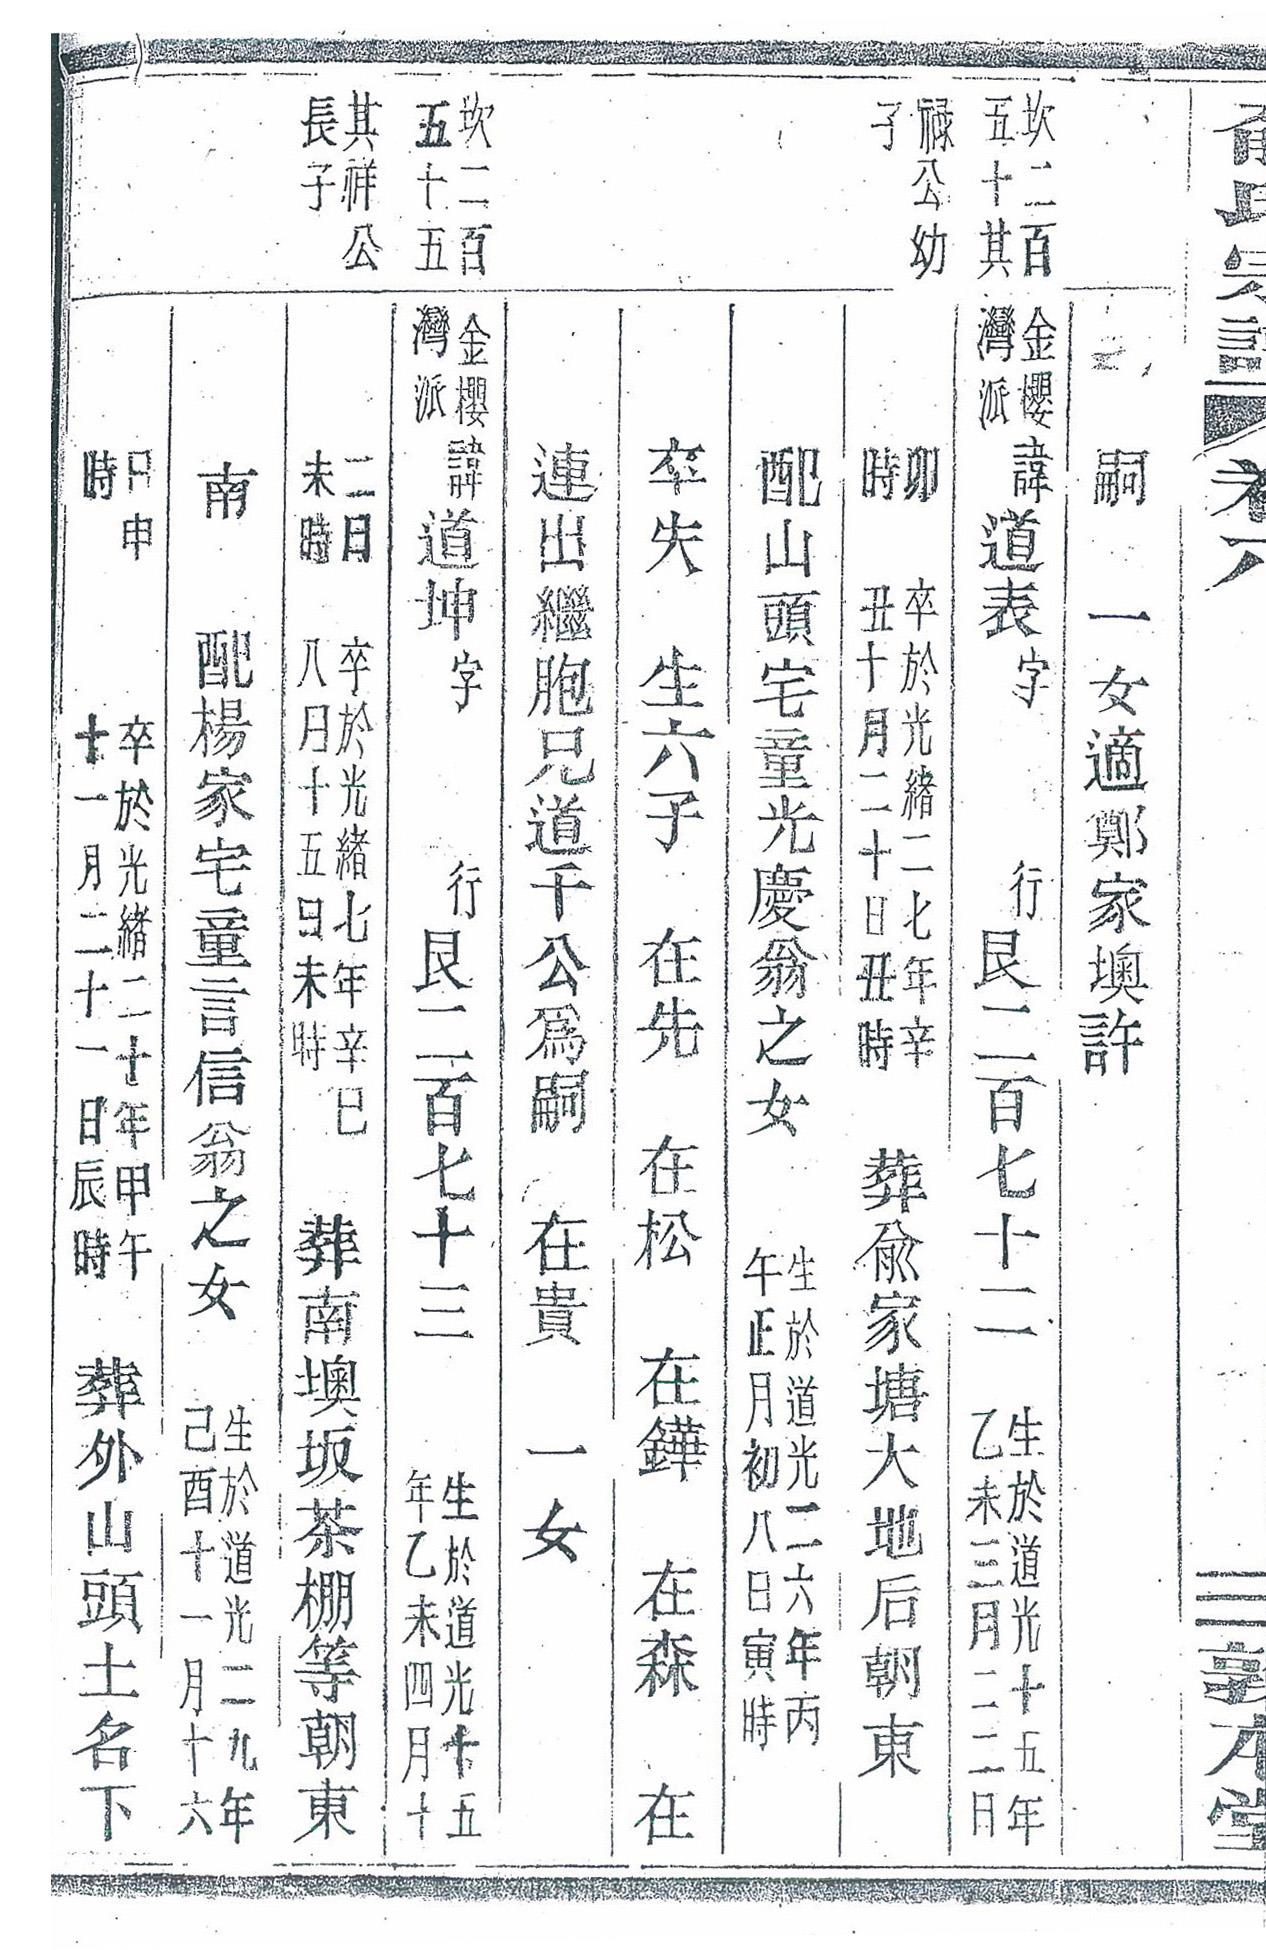 俞氏宗譜
卷八
三
敦本堂
嗣　一女適鄭家墺許
坎二百
五十其
祿公幼
子
金櫻
灣派
諱道表字　行艮二百七十二
生於道光十五年
乙未三月二二日
卯
時
卒於光緒二七年辛
丑十月二十日丑時
葬俞家塘大地后朝東
配山頭宅童光慶翁之女
生於道光二六年丙
午正月初八日寅時
卒失　生六子　在先　在松　在鏵　在森　在
連出繼胞兄道千公爲嗣　在貴　一女
坎二百
五十五
其祥公
長子
金櫻
灣派
諱道坤字　行艮二百七十三
生於道光十五
年乙未四月十
二日
未時
卒於光緒七年辛巳
八月十五日未時
葬南墺坂茶棚等朝東
南　配楊家宅童言信翁之女
生於道光二九年
己酉十一月十六
日申
時
卒於光緒二十年甲午
十一月二十一日辰時
葬外山頭土名下